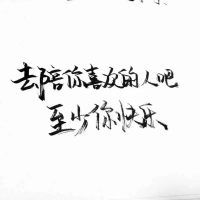 去陪你喜欢的人吧
至少你快乐